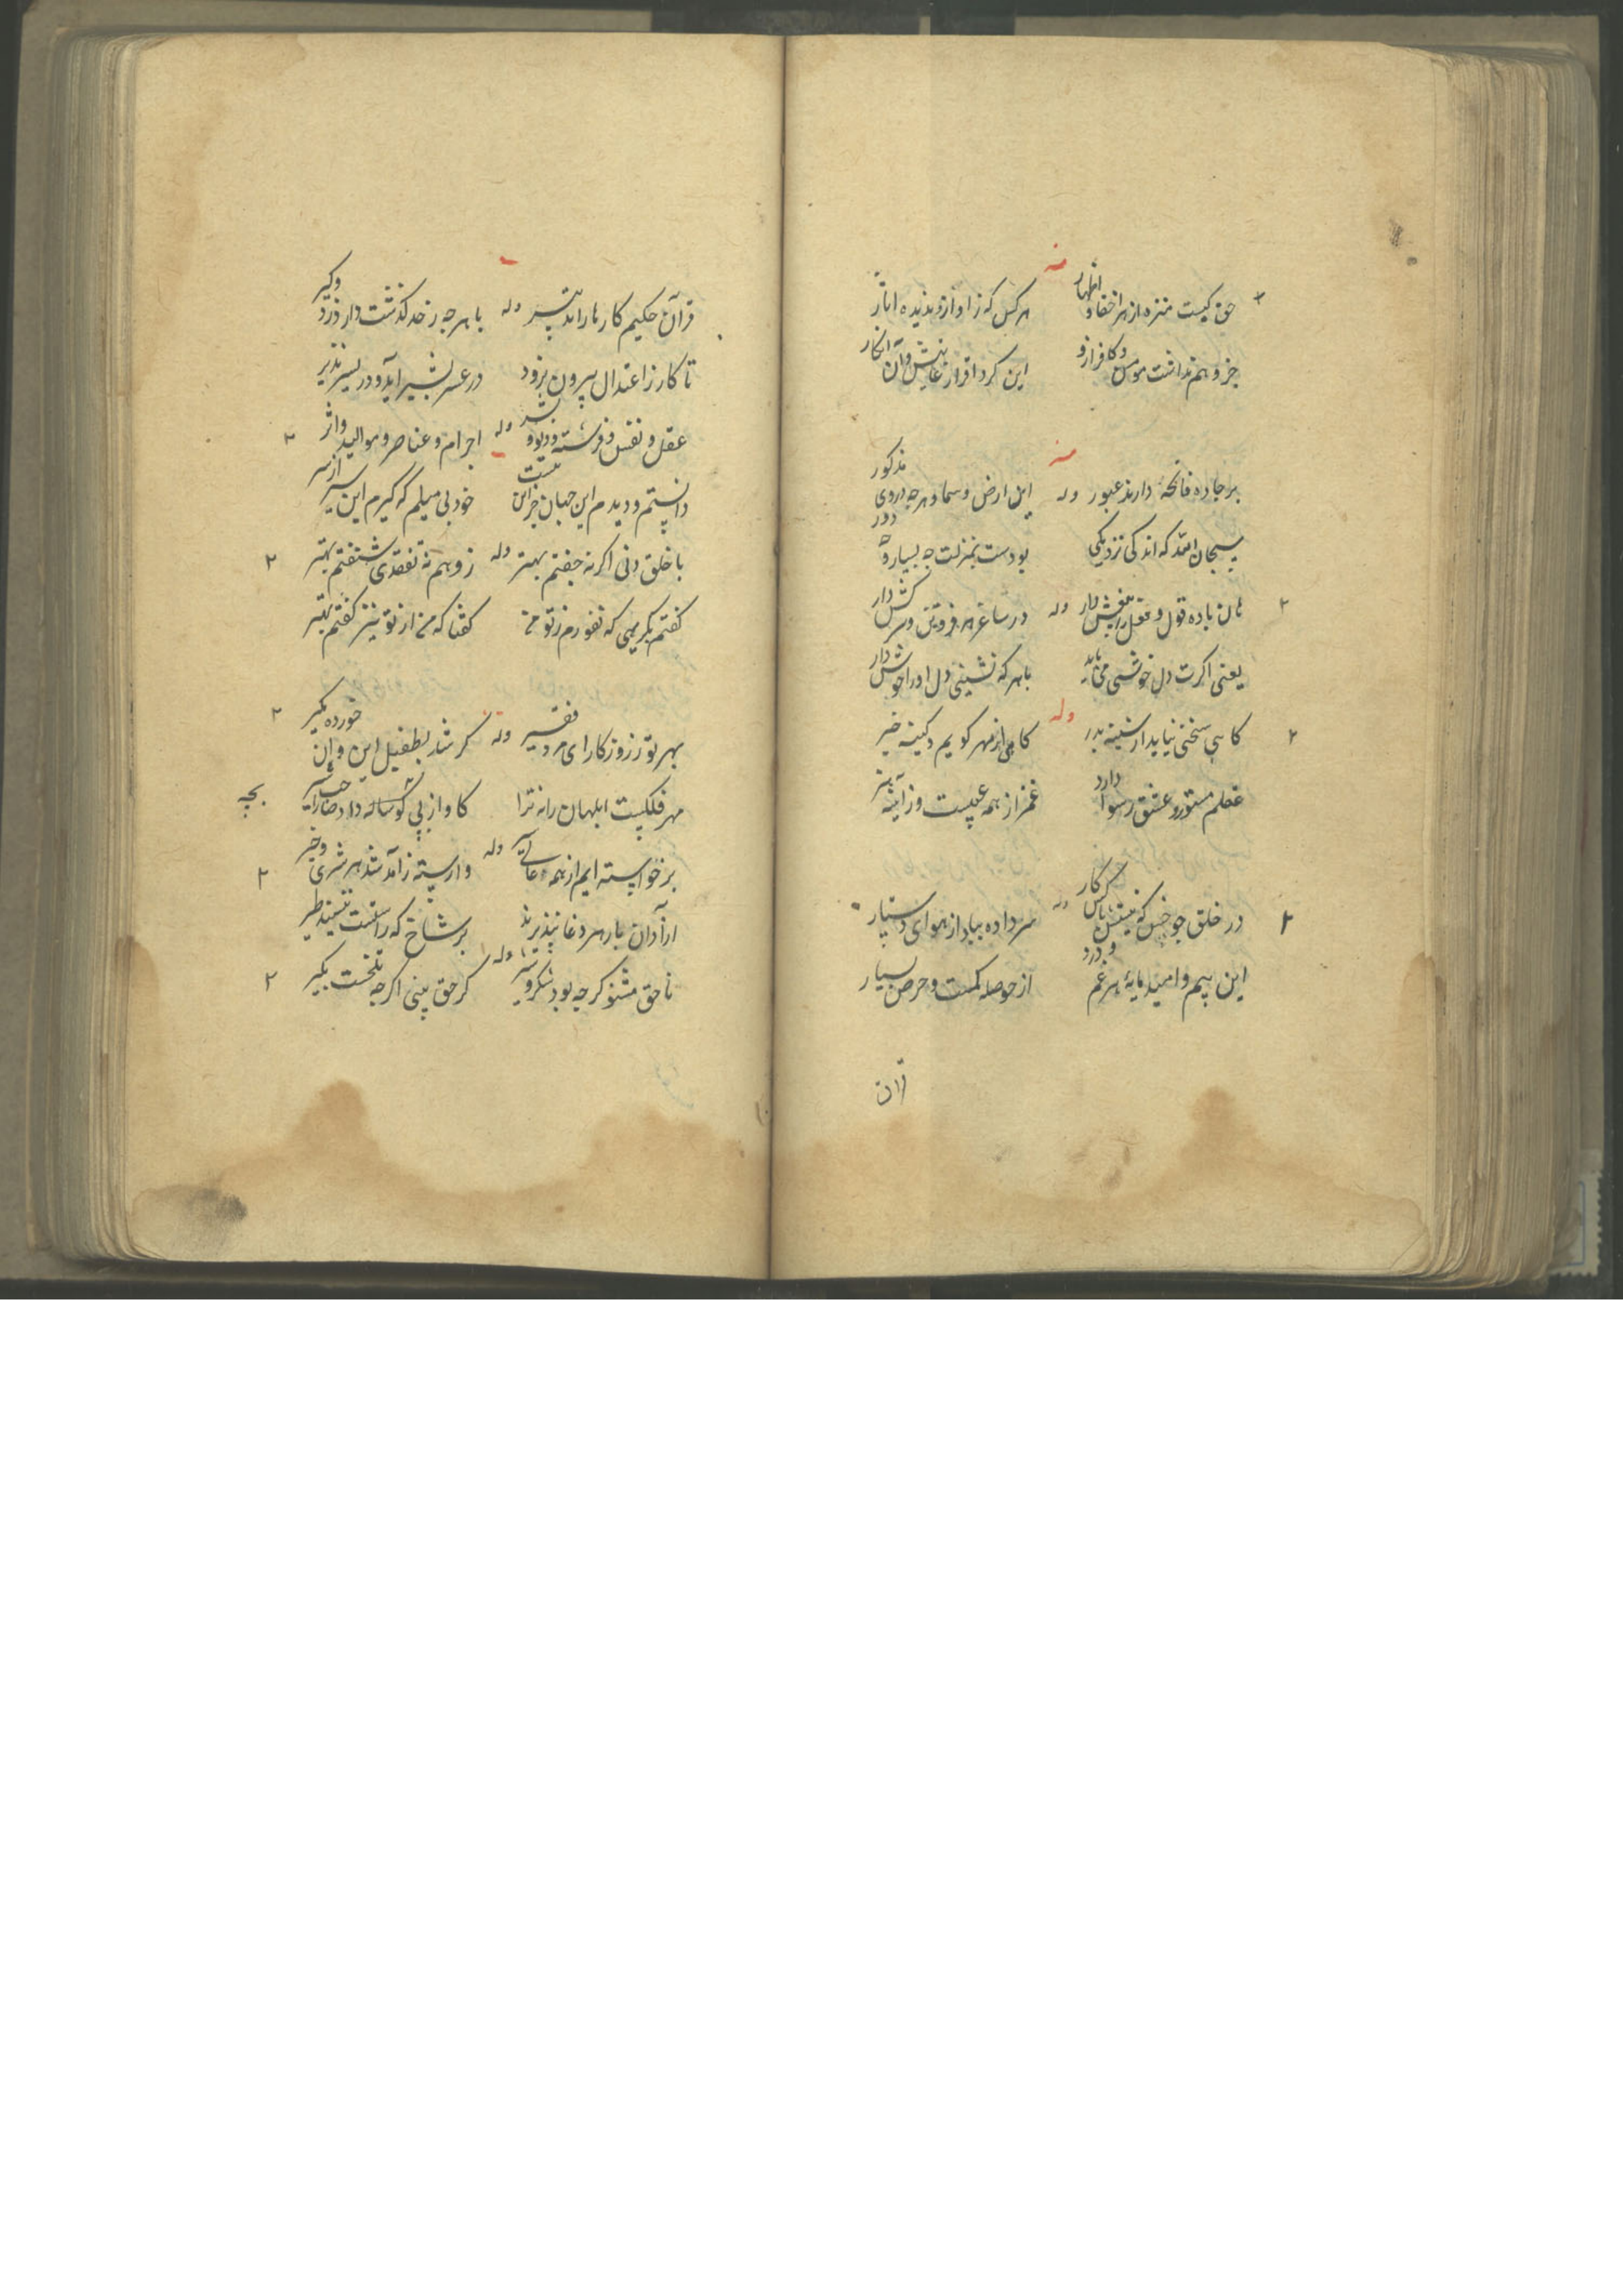 حق کیست منزه از هر اخفا و اظهار هر کس که زاو از و ندیده اثار
جز وهم نداشت مومن و کافر ازو این کرد اقرار غایتش و آن انکار
بر جاده فانحه دارند عبور وله این ارض و سما و هرچه در وی مذکور
سبحان الله که اندکی نزدیکی بودست بمنزلت چه بسیاره دور
وله در ساغر هر فروتن و سرکش دار
یعنی اکرت دل خوشی می باید با هر که نشینی دل او را خوش دار
کاهی سخنی نیاید از سینه بدر وله کاهی از مهر کویم و کینه خبر
عقلم مستور و عشق رسوا دارد غمز از همه عیبست وز آینه هنر
در خلق چو خس که نیستش پاس کار وله سر داده بباد از هوای دستیار
این بیم و امید مایه هر غم و درد از حوصله کمست و حرص بسیار
قرآن
قرآن حکیم کارها را تدبیر وله با هرچه ز حد کذشت دارد
تا کار ز اعتدال بیرون نرود در عسر بشیر آید و در یسر نذیر
عقل و نفس و فرشته و دیو و بشر وله اجرام و عناصر و موالید و اثر
دانستم و دیدم این جهان جز این نیست خود بی میلم که کیرم این سیر از سر
با خلق دنی اکر نه جفتم بهتر وله زوهم نه تفقدی شنفتم بهتر
کفتم بکریمی که نفورم ز تو من کفتا که من از تو نیز کفتم بهتر
بهر تو ز روزکار ای مرد فقیر وله کر شد بطفیل این و آن خورده مکیر
مهر فلکیست ابلهان را نه ترا کاو از پی کوساله دهد
برخواسته ایم از همه وله وارسته ز آمد شد هر شری و خیر
آزادان بار هر دغا نپذیرند بر شاخ که راست ننشیند طیر
ناحق مشنو کرچه بود شکر و شیر وله کر حق بینی اکرچه تلخست بکیر